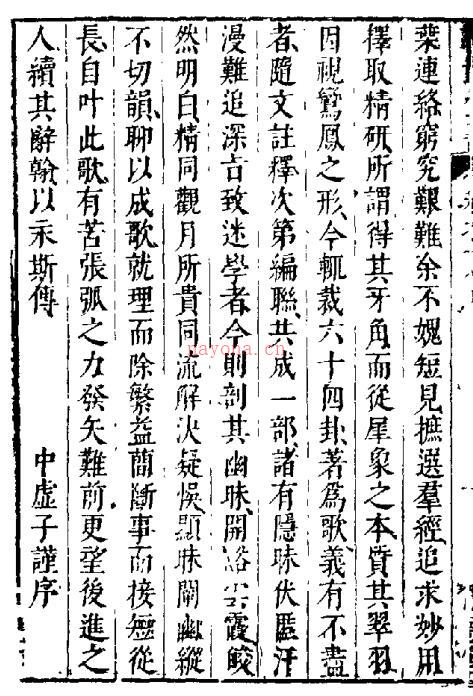 葉連絡窮究艱難余不媿短見摭選羣經追求妙用
擇取精研所謂得其牙角而從犀象之本質其翠羽
因視鸞鳳之形今輒裁六十四卦著為歌義有不盡
者隨文註釋次第編聯共成一部諸有隱昧伏匿汗
漫難追深古致迷學者今則剖其幽昧開豁雲霞皎
然明白精同觀月所貴同流解決疑悞顯昧闡幽縱
不切韻聊以成歌就理而除繁益簡斷事而接短從
長自叶此歌有苦張弧之力發矢難前更望後進之
人續其辭翰以永斯傳
中虛子謹序
payona.cn